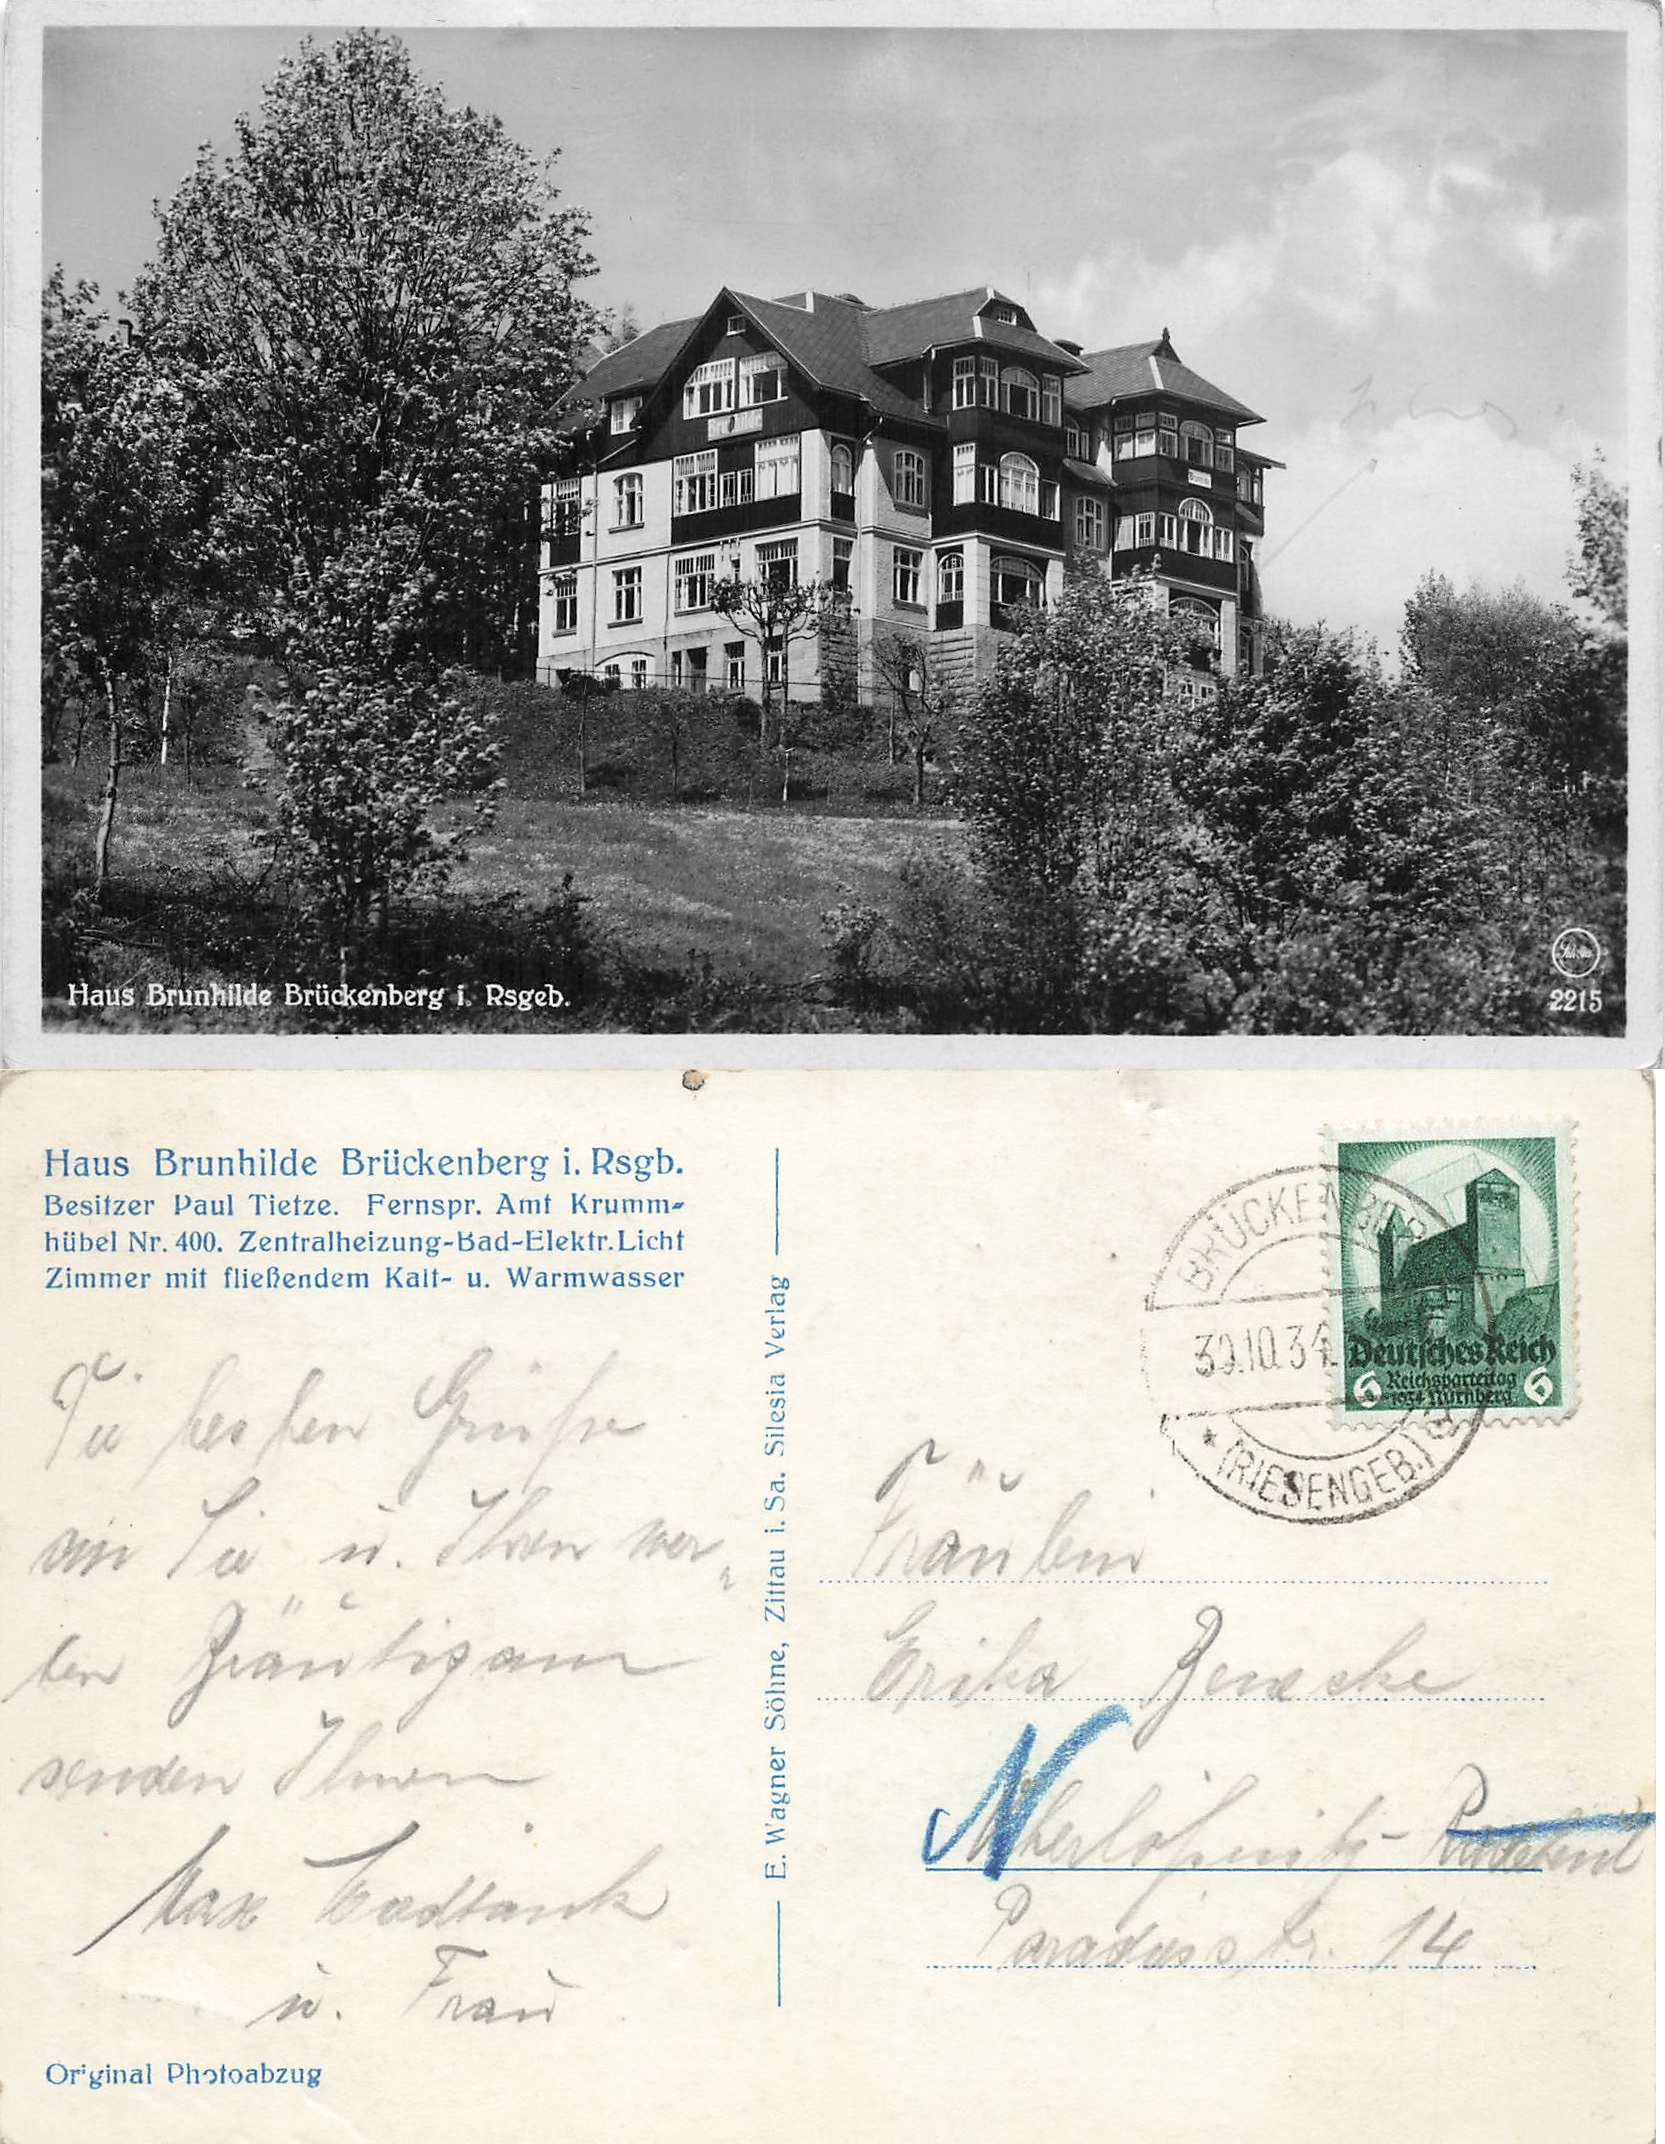 Brunhilde
Haus Brunhilde Brückenberg i. Rsgeb.
2215
Haus Brunhilde Brückenberg i. Rsgb.
Besitzer Paul Tietze. Fernspr. Amt Krumm-
hübel Nr. 400. Zentralheizung-Bad-Elektr. Licht
Zimmer mit fließendem Kalt- u. Warmwasser
Die besten Grüße
an Sie u. Ihren wer-
ten Bräutigam
senden Ihnen
Max
u. Frau
Original Photoabzug
E. Wagner Söhne, Zittau i. Sa. Silesia Verlag
BRÜCKENBERG
30.10.34
* (RIESENGEB.)
Deutsches Reich
6 Reichsparteitag 6
1934 Nürnberg
Fräulein
Erika
N
Radebeul
Paradiesstr. 14